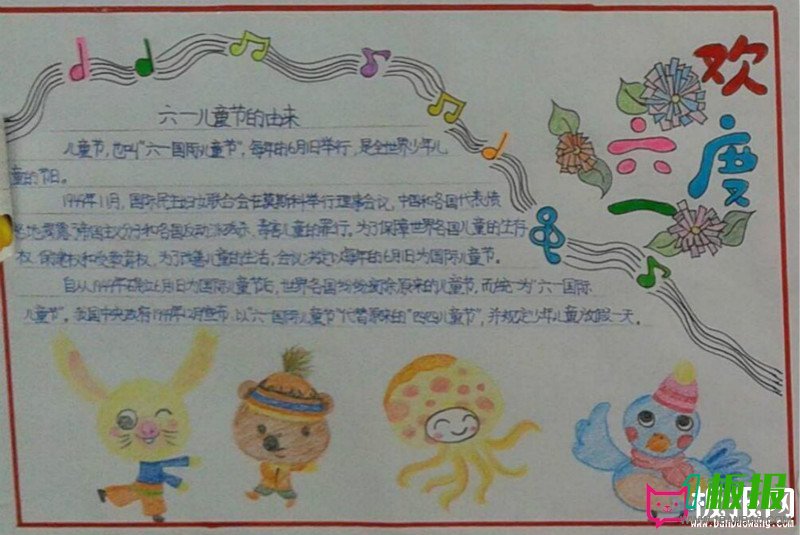 欢度
六一
六一儿童节的由来
儿童节,也叫"六一国际儿童节",每年的6月1日举行,是全世界少年儿
童的节日。
1949年11月,国际民主妇女联合会在莫斯科举行理事会议,中国和各国代表愤
怒地揭露了帝国主义分子和各国反动派残杀、毒害儿童的罪行。为了保障世界各国儿童的生存
权、保健权和受教育权,为了改善儿童的生活,会议决定以每年的6月1日为国际儿童节。
自从1949年确立6月1日为国际儿童节后,世界各国纷纷废除原来的儿童节,而统一为"六一国际
儿童节"。我国中央政府1949年12月宣布,以"六一国际儿童节"代替原来的"四四儿童节",并规定少年儿童放假一天。
板报
板报网
www.banbaowang.com